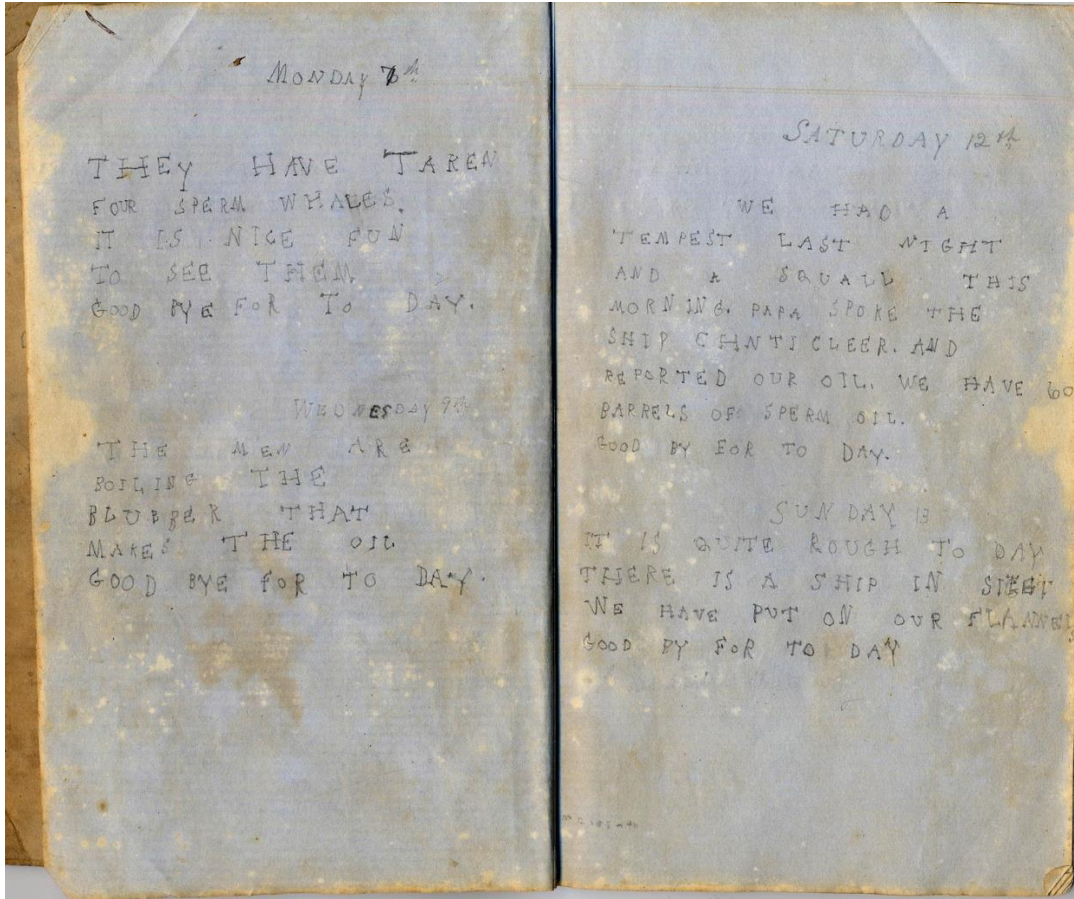 MONDAY 7th
THEY HAVE TAREN
FOUR SPERM WHALES.
IT IS NICE FUN
TO SEE THEM
GOOD BYE FOR TO DAY.
WEDNESDAY 9th
THE MEN ARE
BOILING THE
BLUBBER THAT
MAKES THE OIL
GOOD BYE FOR TO DAY.
SATURDAY 12th
WE HAD A
TEMPEST LAST NIGHT
AND A SQUALL THIS
MORNING. PAPA SPOKE THE
SHIP CHNTICLEER. AND
REPORTED OUR OIL. WE HAVE 60
BARRELS OF SPERM OIL.
GOOD BY FOR TO DAY.
SUNDAY 13
IT IS QUITE ROUGH TO DAY
THERE IS A SHIP IN
WE HAVE PUT ON OUR FLANNELS
GOOD BY FOR TO DAY